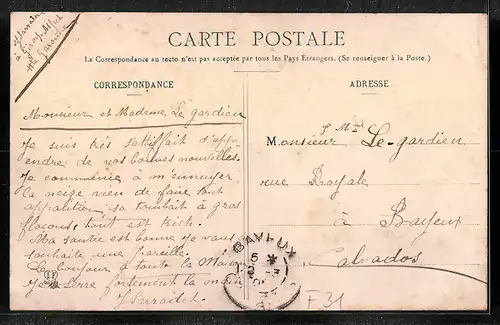 CARTE POSTALE
La Correspondance au recto n'est pas acceptée par tous les Pays Étrangers. (Se renseigner à la Poste.)
CORRESPONDANCE
Monsieur et Madame Le gardien
Je suis très satisfait d'app
endre de vos bonnes nouvelles.
Je commence à m'ennuyer
la neige vien de faire son
apparition, sa tombait à gros
flocons, tout est triste.
Ma santée est bonne je vous
souhaite une pareille.
Le bonjour à toute la
Je serre fortement la main
ADRESSE
Monsieur Le-gardien
rue Royale
à Bayeux
Calvados
BAYEUX
F31